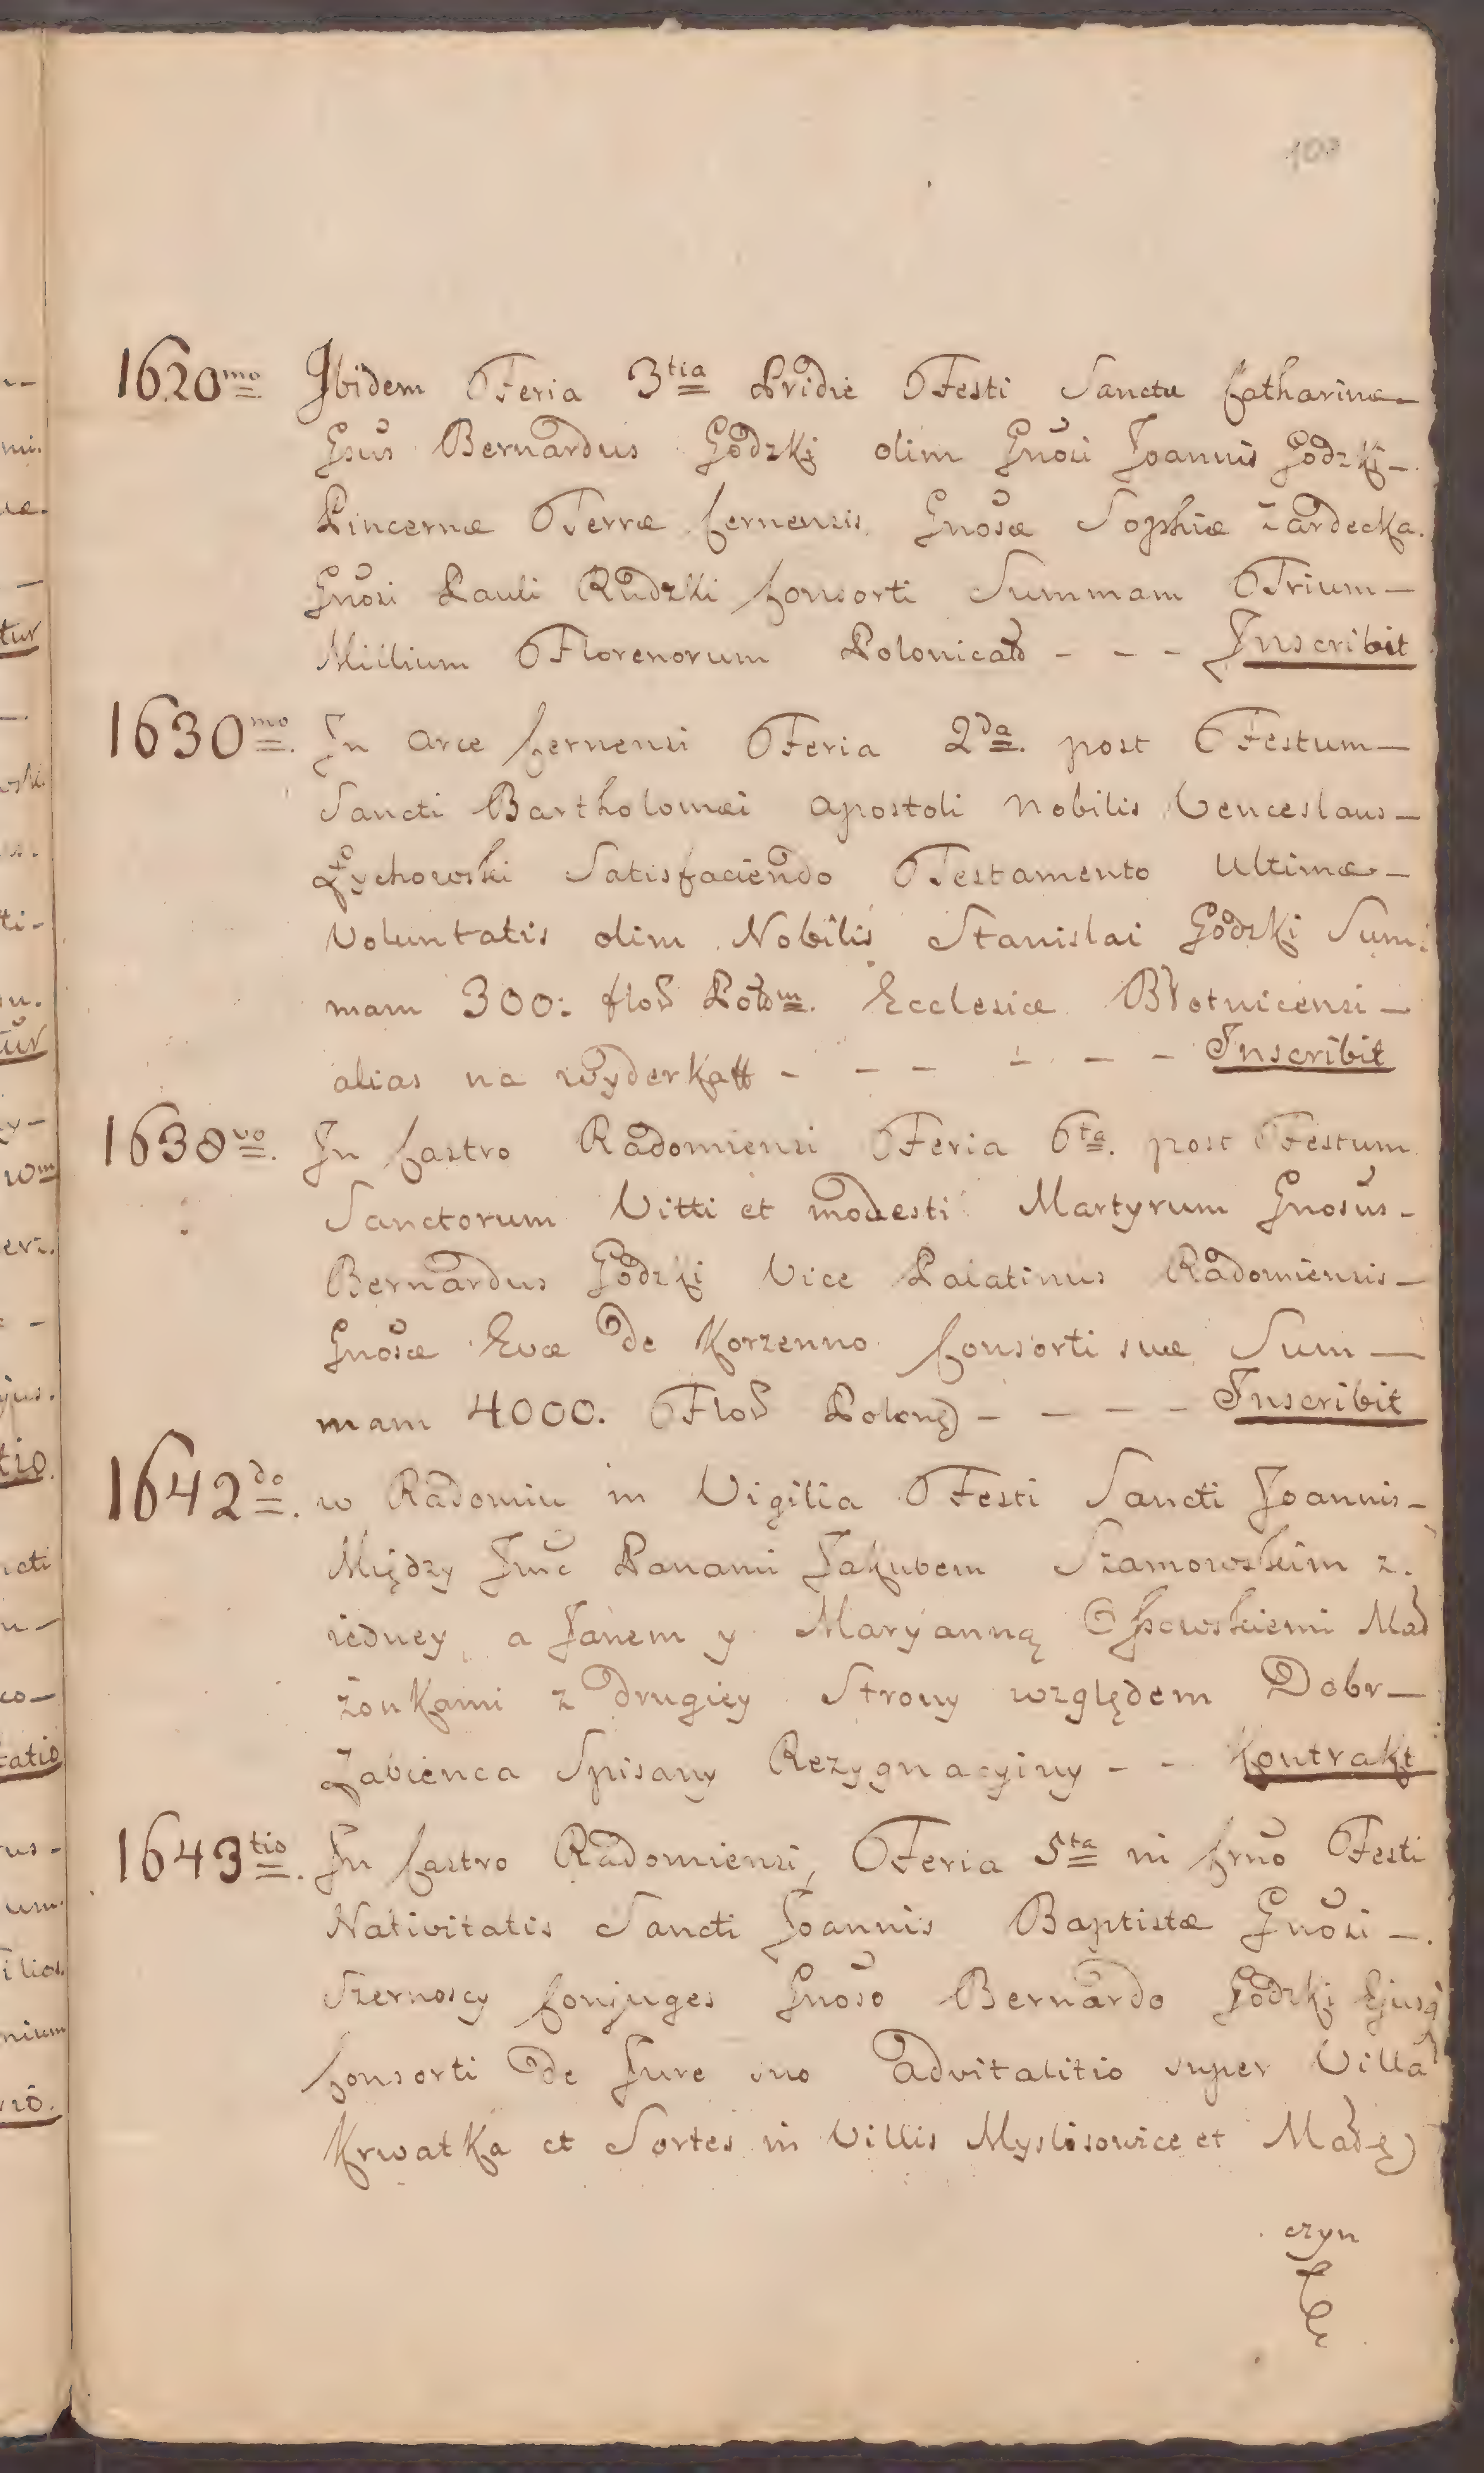 103
1620mo Ibidem Feria 3tia Pridie Festi Sanctæ Catharinæ
Gsus Bernardus Godzki olim Gnosi Joannis Godzki
Pincernæ Terræ Cernensis Gnosæ Sophiæ Żardecka
Gnosi Pauli Rudzki Consorti Summam Trium
Millium Florenorum - - - Inscribit
1630mo. In Arce Cernensi Feria 2da. post Festum
Sancti Bartholomæi Apostoli Nobilis Venceslaus
Żychowski Satisfaciendo Testamento Ultimæ
Voluntatis olim Nobilis Stanislai Godzki Sum:
mam 300: Ecclesiæ Błotnicensi
alias na wyderkaff - - - - - - Inscribit
1638vo. In Castro Radomiensi Feria 6ta. post Festum
Sanctorum Vitti et Modesti Martyrum Gnosus
Bernardus Godzki Vice Palatinus Radomiensis
Gnosæ Evæ de Korzenno Consorti suæ Sum
mam 4000. - - - - Inscribit
1642do. w Radomiu in Vigilia Festi Sancti Joannis
Między Jmć Panami Jakubem Szamowskim z
iedney, a Janem y Maryanną Mał
żonkami z drugiey Strony względem Dobr
Żabienca Spisany Rezygnacyiny - - Kontrakt
1643tio. In Castro Radomiensi, Feria 5ta in Crno Festi
Nativitatis Sancti Joannis Baptistæ Gnosi
Szernoscy Conjuges Gnoso Bernardo Godzki Ejusq
Consorti de Jure suo Advitalitio super Villa
Krwatka et Sortes in Villis Myslisowice et
czyn